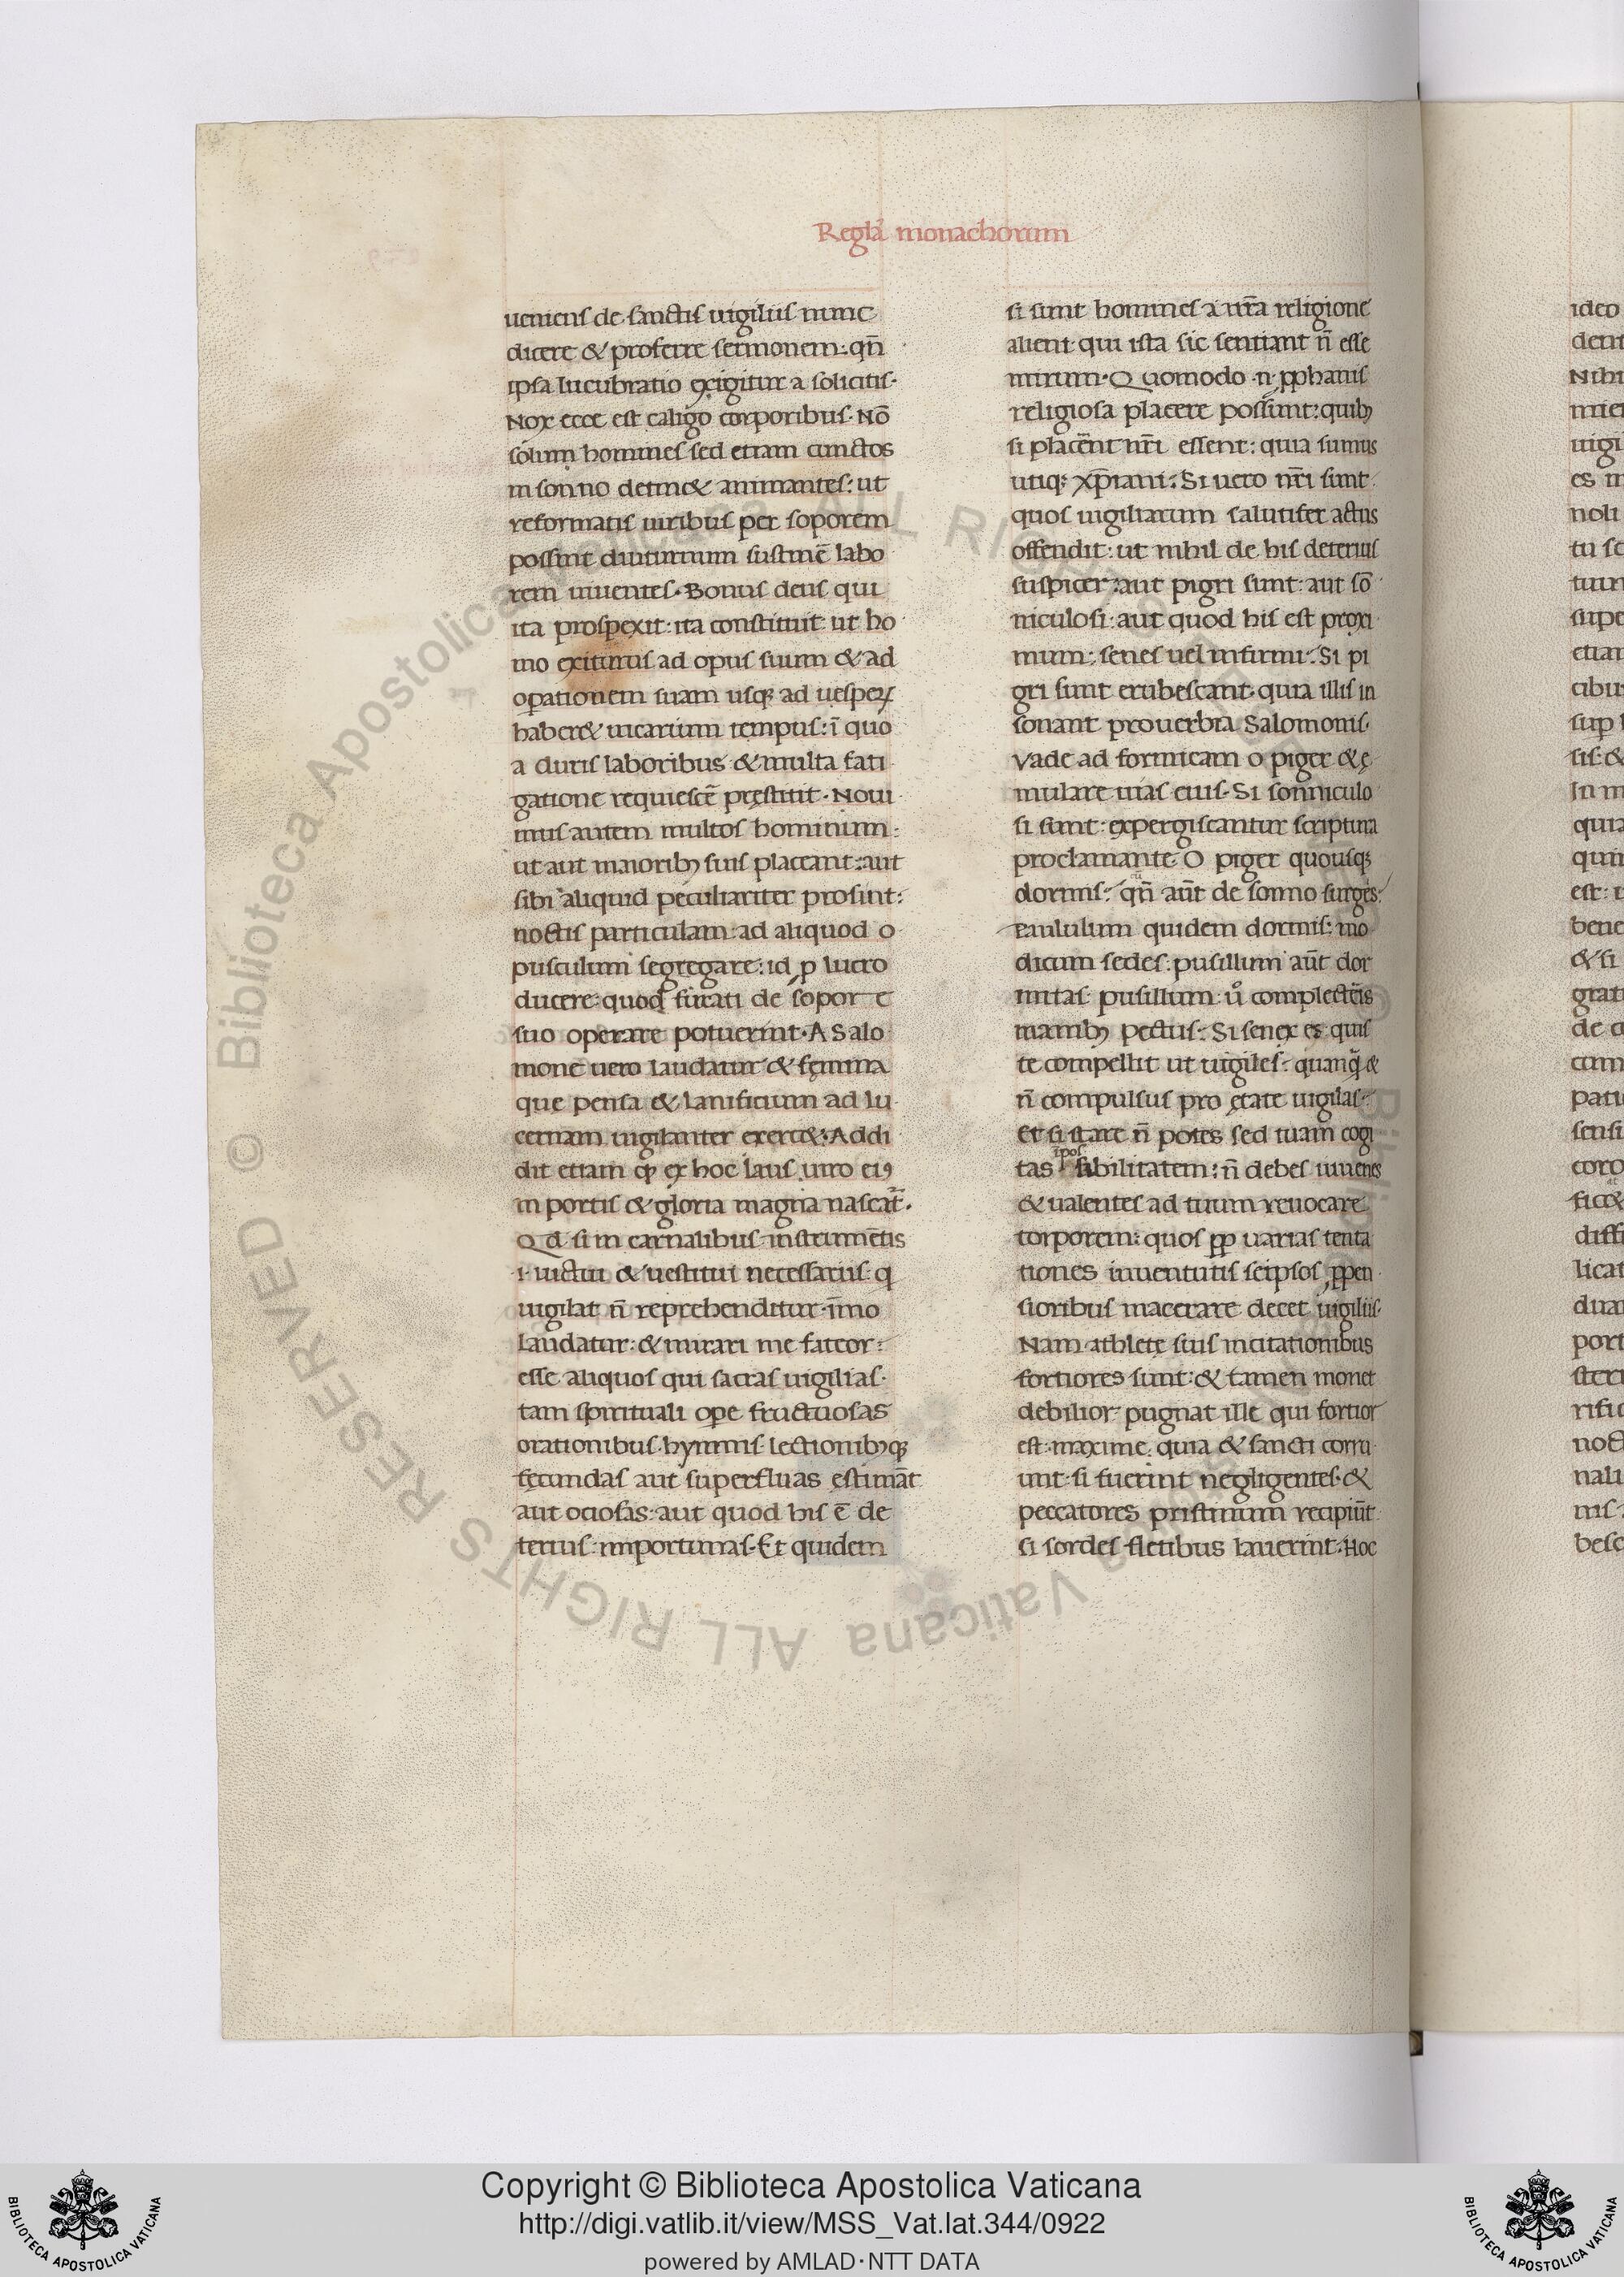 Regła monachorum
ueniens de sanctis uigiliis nunc
dicere & proferre sermonem: qn̄
ipsa lucubratio exigitur a solicitis·
Nox ecce est caligo corporibus· Nō
solum homines sed etiam cunctos
in sonno detin& animantes: ut
reformatis uiribus per soporem
possint diuturnum sustinē labo
rem uiuentes· Bonus deus qui
ita prospexit: ita constituit ut ho
mo exiturus ad opus suum & ad
oꝑationem suam usqꝫ ad uespeꝝ
haber& uicarium tempus: ī quo
a duris laboribus & multa fati
gatione requiescē pręstitit· Noui
mus autem multos hominum:
ut aut maioribꝫ suis placeant: aut
sibi aliquid peculiariter prosint:
noctis particulam ad aliquod o
pusculum segregare: id ꝓ lucro
ducere: quod furati de sopore
suo operare potuerint· A Salo
mone uero laudatur & fęmina
que pensa & lanificium ad lu
cernam uigilanter exerc&: Addi
dit etiam ꝙ ex hoc laus uiro eiꝰ
in portis & gloria magna nascat̄·
Qd̄ si in carnalibus instrumētis
·i· uictui & uestitui necessariis· q̣
uigilat n̄ reprehenditur· īmo
laudatur: & mirari me fateor:
esse aliquos qui sacras uigilias·
tam spirituali oꝑe fructuosas
orationibus· hymnis· lectionibꝫqꝫ
fęcundas aut superfluas ęstimāt
aut ociosas: aut quod his ē de
terius: importunas· Et quidem
si sunt homines a nr̄a religione
alieni qui ista sic sentiant n̄ esse
mirum· Quomodo ·n· ꝓphanis
religiosa placere possunt: quibꝫ
si placēnt nr̄i essent: quia sumus
utiqꝫ xp̄iani: Si uero nr̄i sunt
quos uigiliarum salutifer actus
offendit: ut nihil de his deterius
suspicer: aut pigri sunt: aut sō
niculosi: aut quod his est proxi
mum: senes uel infirmi: Si pi
gri sunt erubescant· quia illis in
sonant prouerbia Salomonis·
Vade ad formicam o piger & ę
mulare uias eius· Si sonniculo
si sunt: expergiscantur scriptura
proclamante· O piger quousqꝫ
dormis: qn̄ aūt de sonno surges:
Paululum quidem dormis: mo
dicum sedes: pusillum aūt dor
mitas: pusillum uº complectēis
manibꝫ pectus: Si senex es quis
te compellit ut uigiles: quanq̄ &
n̄ compulsus pro ętate uigilas:
Et si stare n̄ potes sed tuam cogi
tas īposibilitatem: n̄ debes iuuenes
& ualentes ad tuum reuocare
torporem: quos ꝓp uarias tenta
tiones iuuentutis seipsos ꝓpen
sioribus macerare decet uigiliis·
Nam athletę suis incitationibus
fortiores sunt: & tamen monet
debilior pugnat ille qui fortior
est: maxime: quia & sancti corru
unt: si fuerint negligentes· &
peccatores pristinum recipiūt
si sordes fletibus lauerint· Hoc
Copyright © Biblioteca Apostolica Vaticana
http://digi.vatlib.it/view/MSS_Vat.lat.344/0922
powered by AMLAD·NTT DATA